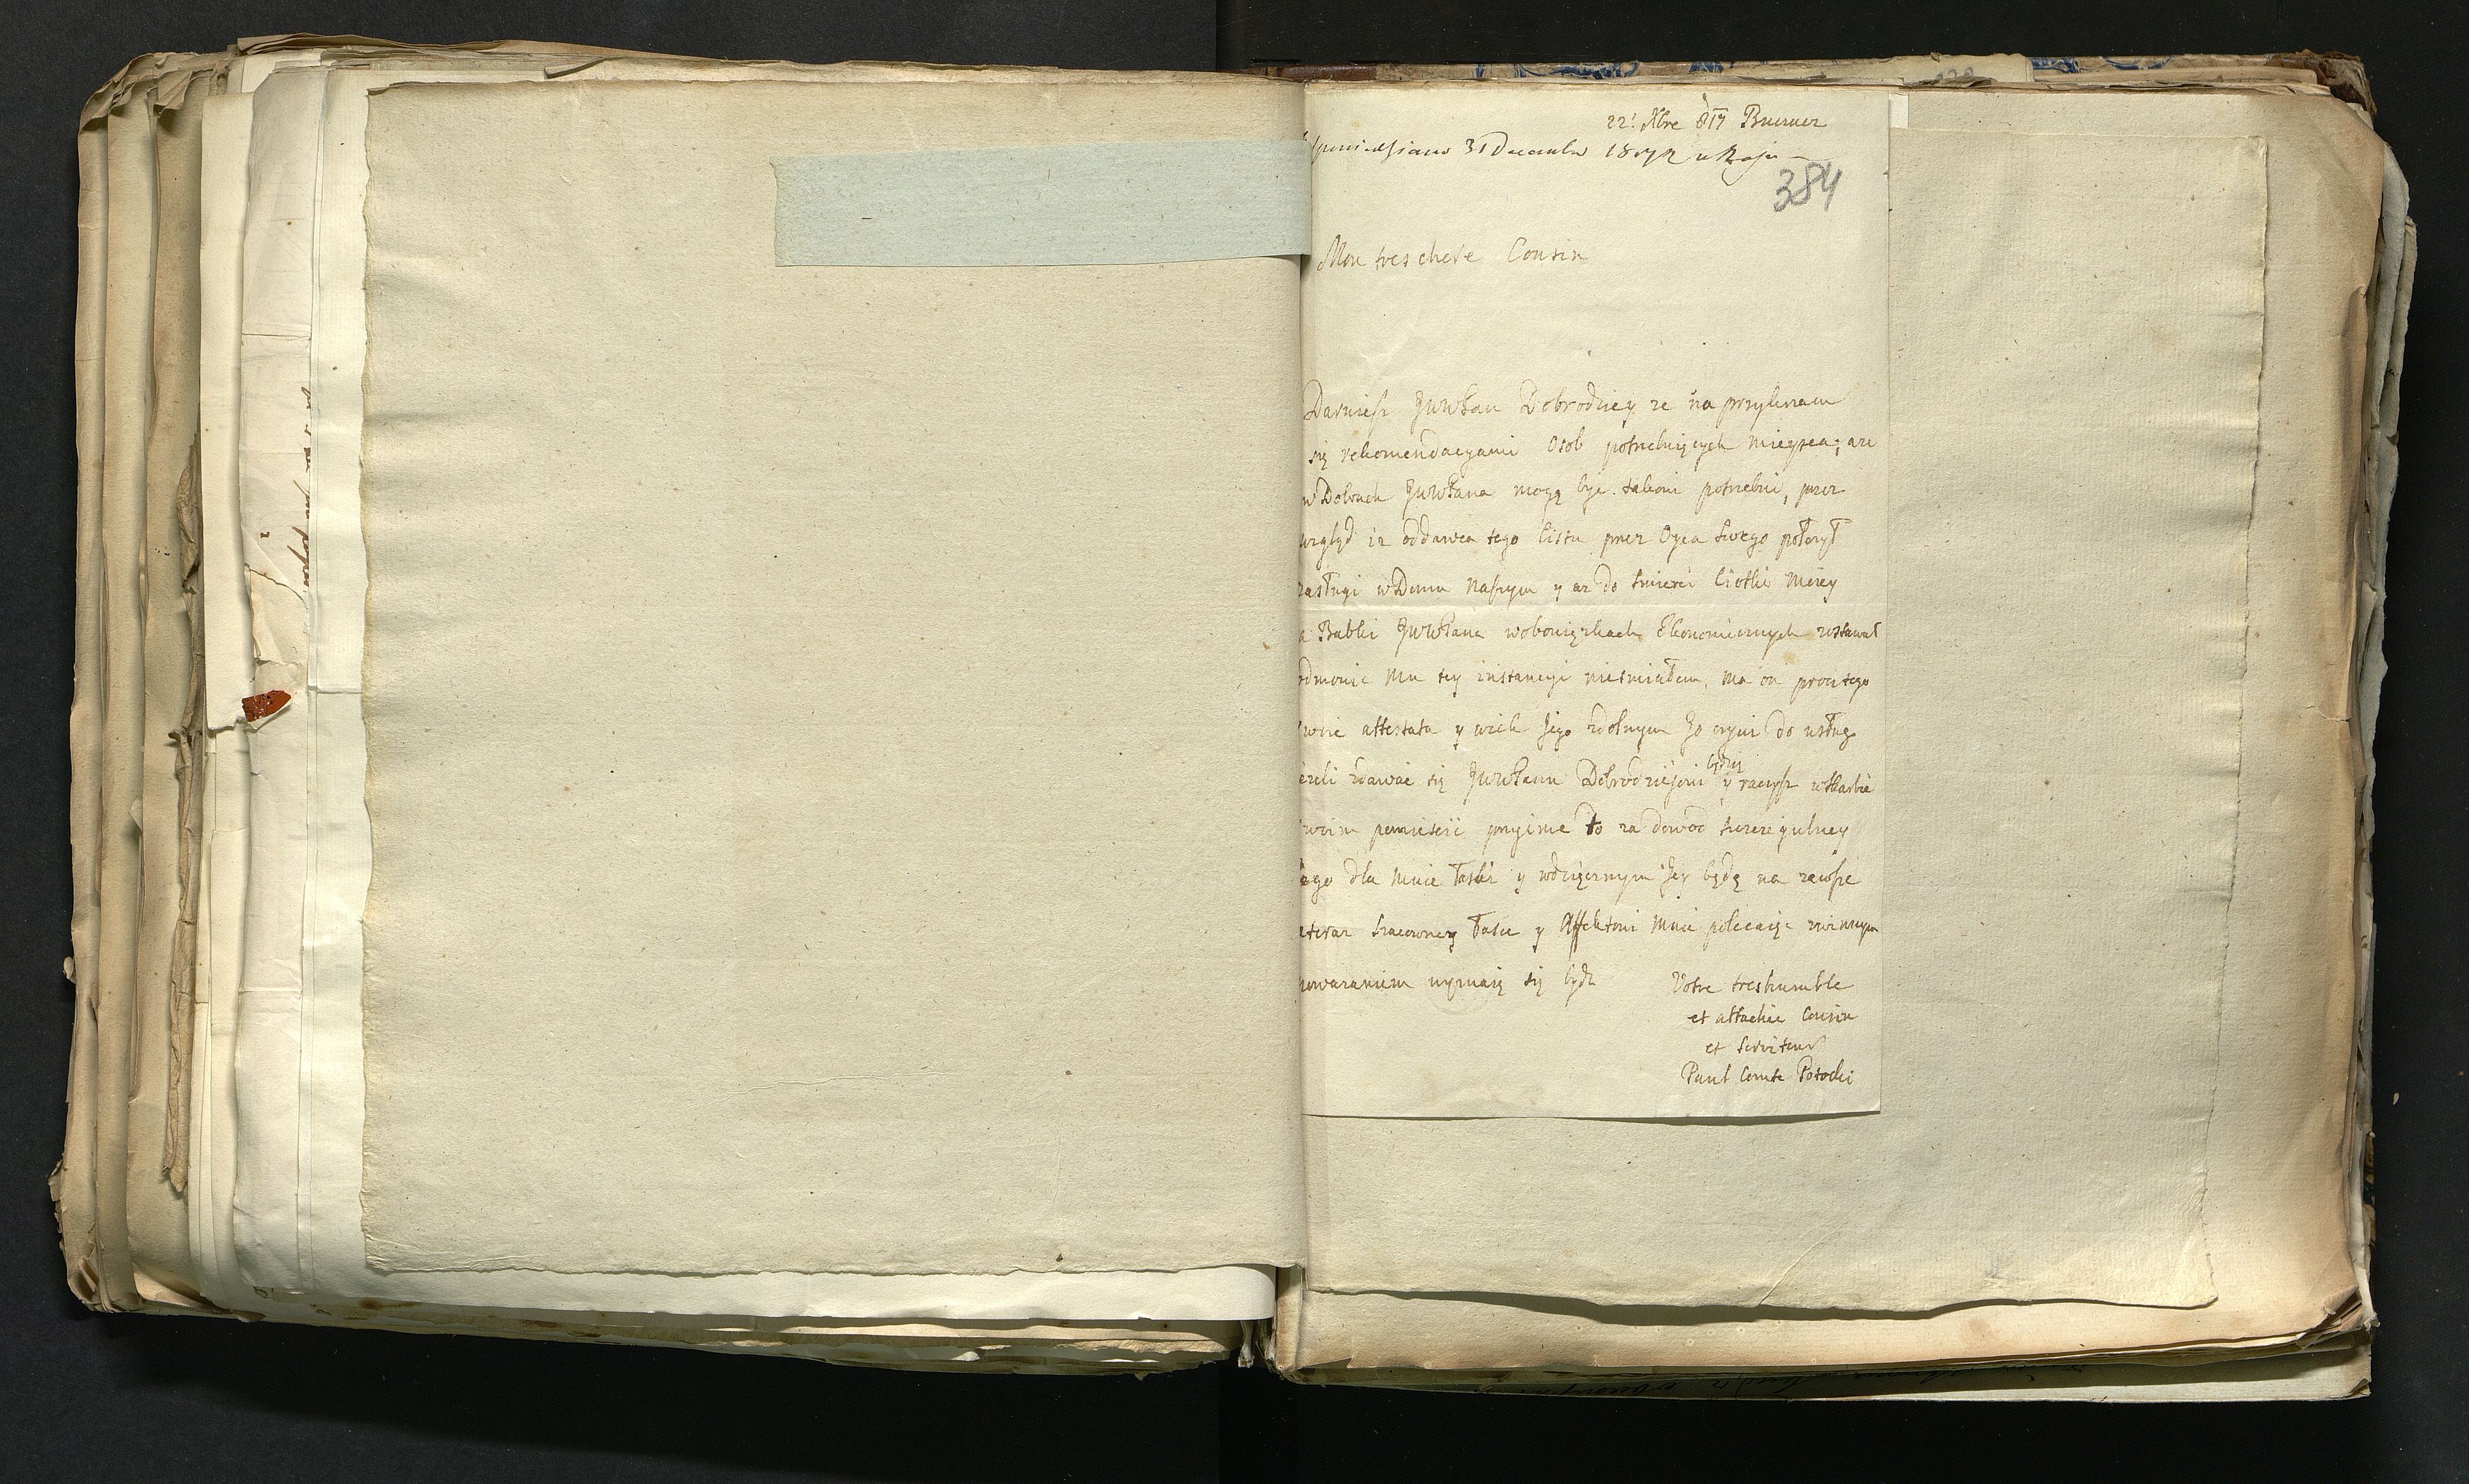 22! Xbre 817 Buczacz
31 Decembr 1817 R
384
Mon tres chere Cousin
Darujesz JWWPan Dobrodziey ze na przykrzam
się rekomendacyami Osob potrzebuiących mieysca; aże
w Dobrach JWWPana mogą byc takowi potrzebni, przez
wzgląd iz oddawca tego listu przez Oyca swego położył
zasługi w Domu Naszym y az do smierci Ciotki moiey
a Babki JWWPana wobowiązkach Ekonomicznych zostawał
odmowic mu tey instancyi niesmiałem, ma on procz tego
swoie attestata y wiek Jego zdolnym Go czyni do usług
iezeli zdawać się JWWPanu Dobrodziejowi będzie y raczysz w skarbie
swoim pomieścić przyime to za dowod szczegulney
Jego dla mnie łaski y wdzięcznym Jey będę na zawsze
a teraz szacowney łasce y Affektowi mnie polecaiąc zwinnym
powazaniem wyznaię się bydz
Votre treshumble
et attachée Cousin
et Serviteur
Paul Comte Potocki